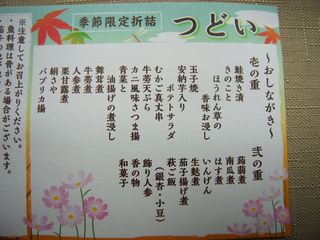 季節限定折詰
つどい
～おしながき～
壱の重
鮭焼き漬
きのこと
ほうれん草の
香味お浸し
玉子焼
安納芋入り
ポテトサラダ
むかご真丈串
牛蒡天ぷら
カニ風味さつま揚
青菜と
油揚げの煮浸し
舞茸煮
牛蒡煮
人参煮
栗甘露煮
絹さや
パプリカ揚
弐の重
蒟蒻煮
南瓜煮
はす煮
いんげん
茄子揚げ煮
生麩煮
萩ご飯
（銀杏・小豆）
飾り人参
香の物
和菓子
※注意してお召上がりください。
・魚料理は骨がある場合がございます。